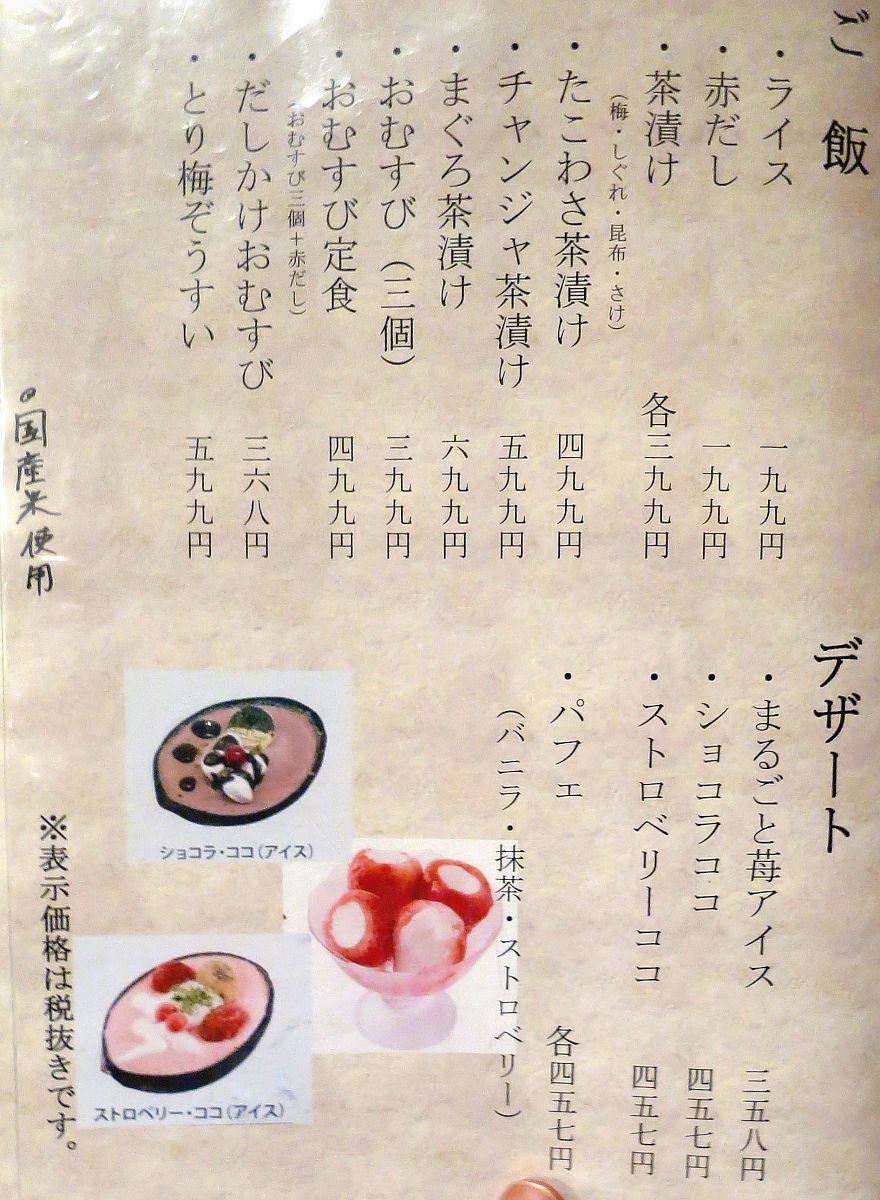 ご飯
・ライス 一九九円
・赤だし 一九九円
・茶漬け 各三九九円
（梅・しぐれ・昆布・さけ）
・たこわさ茶漬け 四九九円
・チャンジャ茶漬け 五九九円
・まぐろ茶漬け 六九九円
・おむすび（三個） 三九九円
・おむすび定食 四九九円
（おむすび三個＋赤だし）
・だしかけおむすび 三六八円
・とり梅ぞうすい 五九九円
。国産米使用
デザート
・まるごと苺アイス 三五八円
・ショコラココ 四五七円
・ストロベリーココ 四五七円
・パフェ 各四五七円
（バニラ・抹茶・ストロベリー）
ショコラ・ココ（アイス）
ストロベリー・ココ（アイス）
※表示価格は税抜きです。